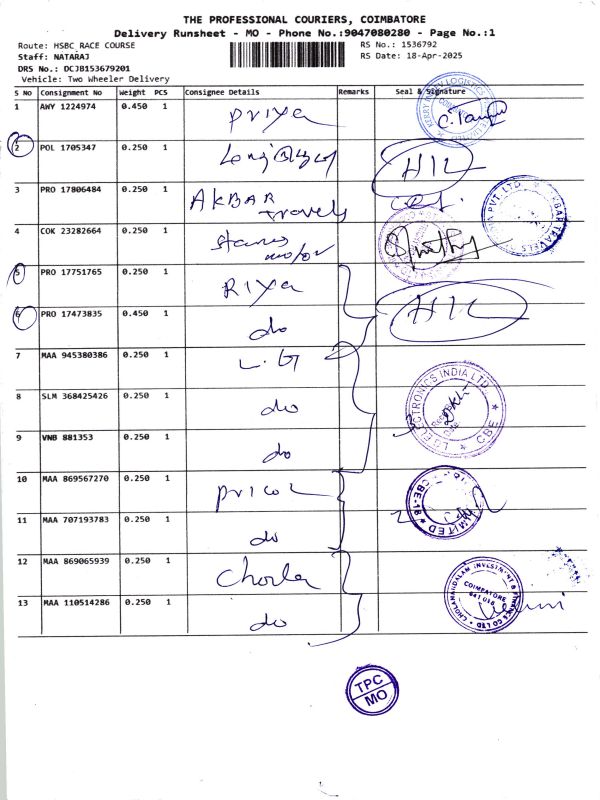 THE PROFESSIONAL COURIERS, COIMBATORE
Delivery Runsheet - MO - Phone No.:9047080280 - Page No.:1
Route: HSBC RACE COURSE
RS No.: 1536792
Staff: NATARAJ
RS Date: 18-Apr-2025
DRS No.: DCJ8153679201
Vehicle: Two Wheeler Delivery
S No Consignment No Weight PCS Consignee Details Remarks Seal & Signature
1 AWY 1224974 0.450 1 Priya
2 POL 1705347 0.250 1 HIL
3 PRO 17806484 0.250 1 AKBAR
Travels
4 COK 23282664 0.250 1 Stanes
motor
5 PRO 17751765 0.250 1 Riya
6 PRO 17473835 0.450 1 do HIL
7 MAA 945380386 0.250 1 L.G
8 SLM 368425426 0.250 1 do
9 VNB 881353 0.250 1 do
10 MAA 869567270 0.250 1 pricol
11 MAA 707193783 0.250 1 do
12 MAA 869065939 0.250 1 Chola
13 MAA 110514286 0.250 1 do
KERRY INDEV LOGISTICS PRIVATE LIMITED
COIMBATORE
PVT. LTD. AKBAR TRAVELS
LG ELECTRONICS INDIA LTD. CBE
LIMITED CBE-18
CHOLAMANDALAM INVESTMENT & FINANCE CO LTD
COIMBATORE
641 018
TPC
MO